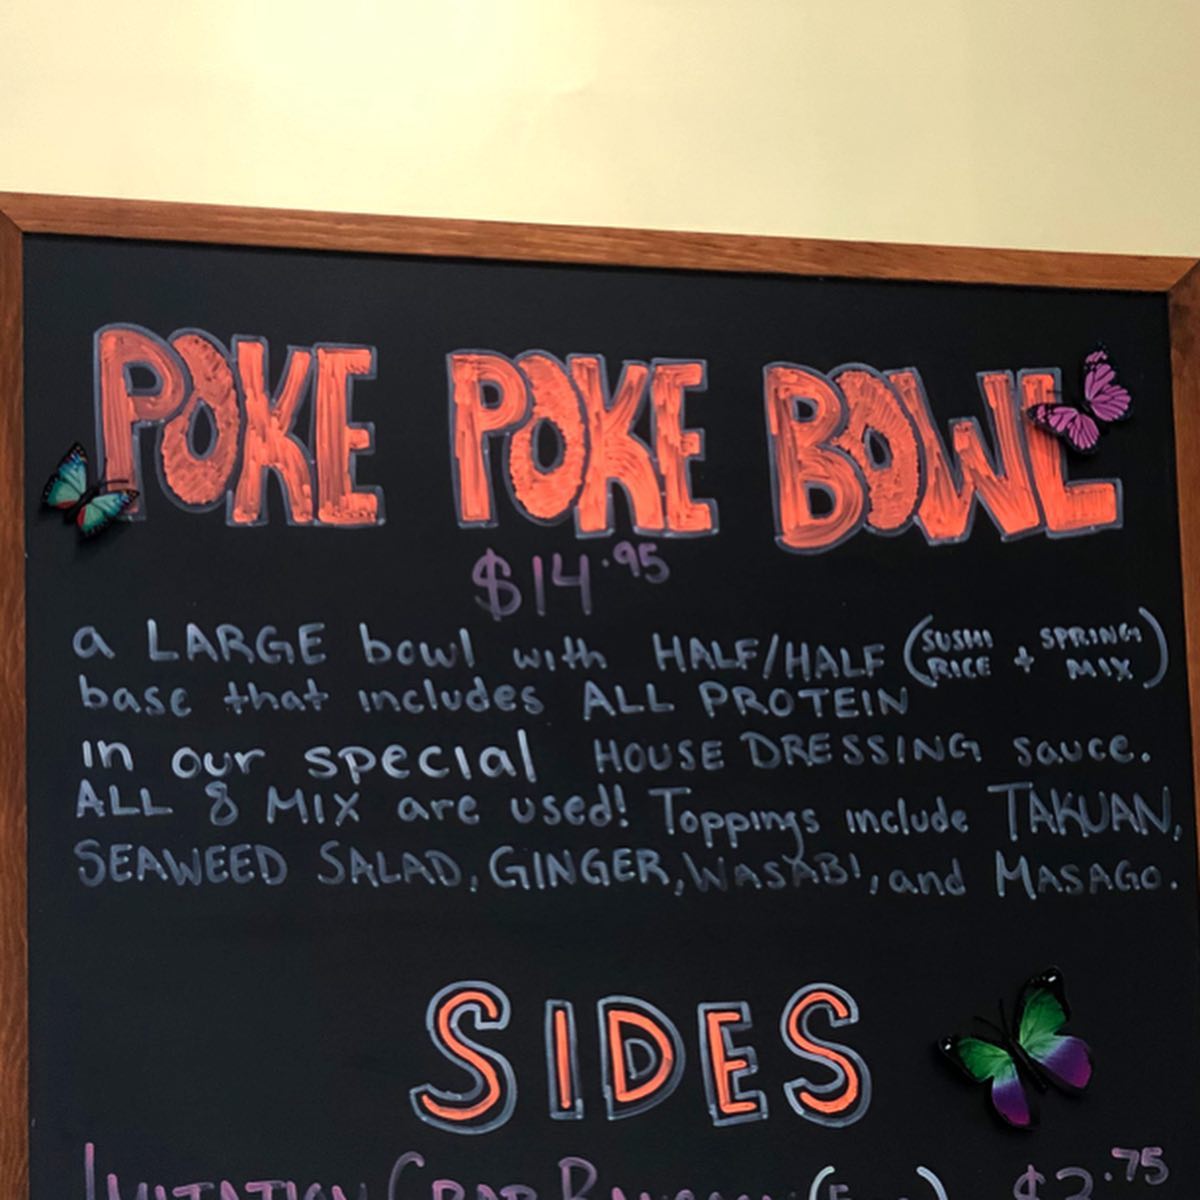 POKE POKE BOWL
$14.95
a LARGE bowl with HALF/HALF (SUSHI RICE + SPRING MIX)
base that includes ALL PROTEIN
in our special HOUSE DRESSING sauce.
ALL 8 MIX are used! Toppings include TAKUAN,
SEAWEED SALAD, GINGER, WASABI, and MASAGO.
SIDES
IMITATION CRAB $2.75